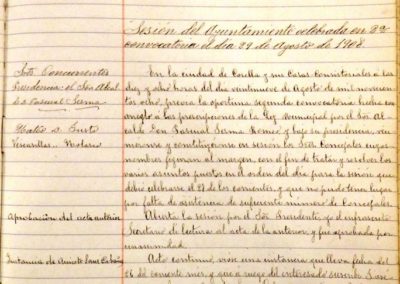 Sesión del Ayuntamiento celebrada en 2ª
convocatoria el día 29 de Agosto de 1908.
Sres. Concurrentes
Presidencia el Sor. Alcal
de Pascual Sama
En la ciudad de Coella y sus Casas Consistoriales á las
diez y ocho horas del día veintinueve de Agosto de mil novecien
tos ocho, previa la oportuna segunda convocatoria hecha con
arreglo á las prescripciones de la Ley municipal por el Sor. Al
calde Don Pascual Sama Romeo y bajo su presidencia, reu
nieronse y constituyeronse en sesión los Sres. Concejales cuyos
nombres figuran al margen, con el fin de tratar y resolver los
varios asuntos puestos en el orden del día para la sesión que
debió celebrarse el 27 de los corrientes, y que no pudo tener lugar
por falta de asistencia de suficiente número de Concejales.
Aprobación del acta anterior
Abierta la sesión por el Sor. Presidente, yo el infrascrito
Secretario dí lectura al acta de la anterior, y fué aprobada por
unanimidad.
Instancia de
Acto continuo, vióse una instancia que lleva fecha del
26 del corriente mes, y que á ruego del interesado suscribe José